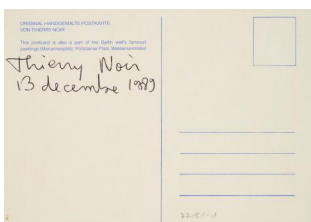 ORIGINAL HANDGEMALTE POSTKARTE
VON THIERRY NOIR
This postcard is also a part of the Berlin wall's famous
paintings (Mariannenplatz, Potsdamer Platz, Waldemarstraße)
Thierry Noir
13 decembre 1989